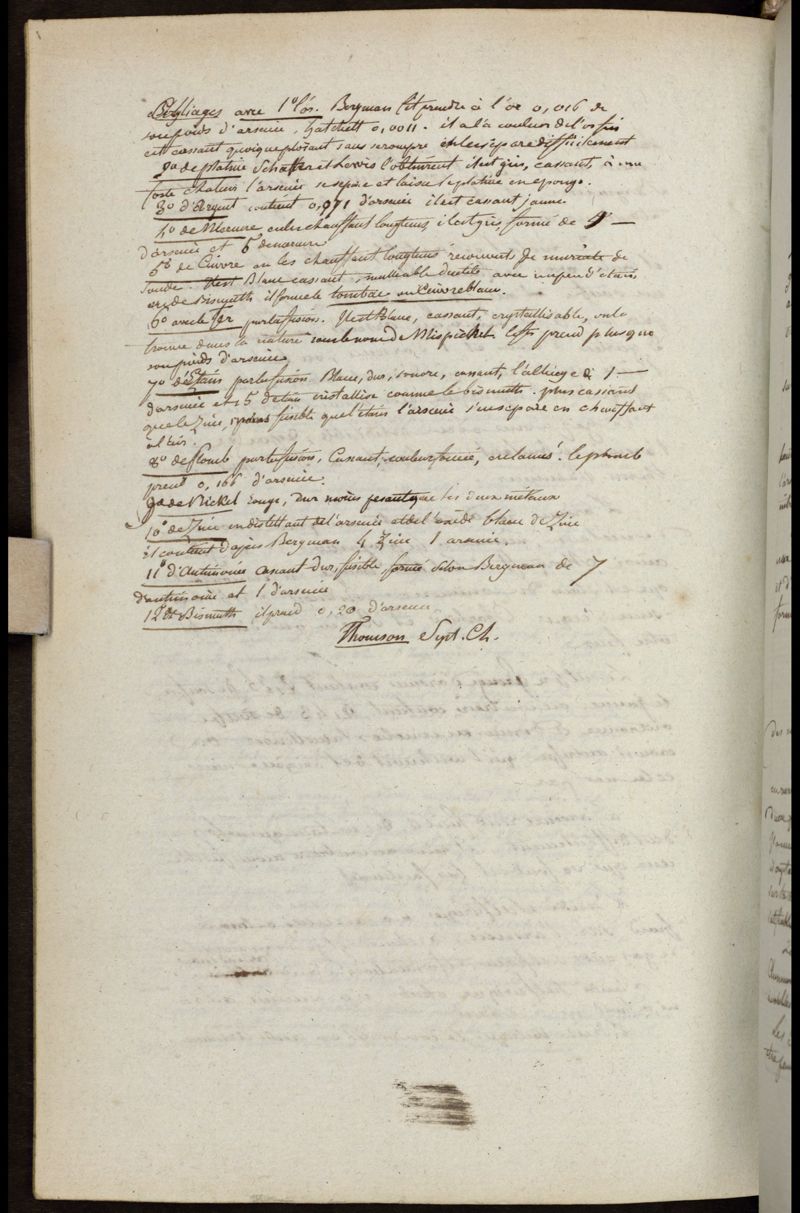 Alliages avec 1º l'or. Bergman fit prendre à l'or 0,016 de
son poids d'arsenic, hatchett 0,0011. il a la couleur de l'or fin
est cassant quoique ployant sans se rompre et le sépare difficilement
2º de platine Schaffer et Lewis l'obtinrent il est gris, cassant, à une
forte chaleur l'arsenic se sépare et laisse le platine en éponge.
3º d'Argent contient 0,071 d'arsenic il est cassant jaune
4º de Mercure en les chauffant longtems, il est gris, formé de
d'arsenic et 5 de mercure
5º de Cuivre on les chauffant longtems recouvert de muriate de
soude. Il est Blanc cassant, malleable ductile avec un peu d'étain
ou de bismuth il forme le tombac ou Cuivre blanc.
6º avec le fer par la fusion. Il est Blanc, cassant, crystallisable, on le
trouve dans la nature sous le nom de Mispickel. le fer prend plus que
son poids d'arsenic
7º d'Etain par la fusion Blanc, dur, sonore, cassant, l'alliage à 1
d'arsenic et 15 d'étain cristallise comme le bismuth. plus cassant
que le Zinc, moins fusible que l'étain l'arsenic s'en sépare en chauffant
à l'air.
8º de plomb par la fusion, Cassant, couleur foncée, a lames. le plomb
prend 0,166 d'arsenic.
9º de Nickel rouge, dur moins pesant que les deux métaux
10º de Zinc en distillant de l'arsenic et de l'oxide blanc de Zinc
il contient d'après Bergman 4 Zinc 1 arsenic.
11º d'Antimoine cassant dur, fusible, formé selon Bergman de 7
d'antimoine et 1 d'arsenic
12º de Bismuth il prend 0,20 d'arsenic
Thomson Syst. Ch.